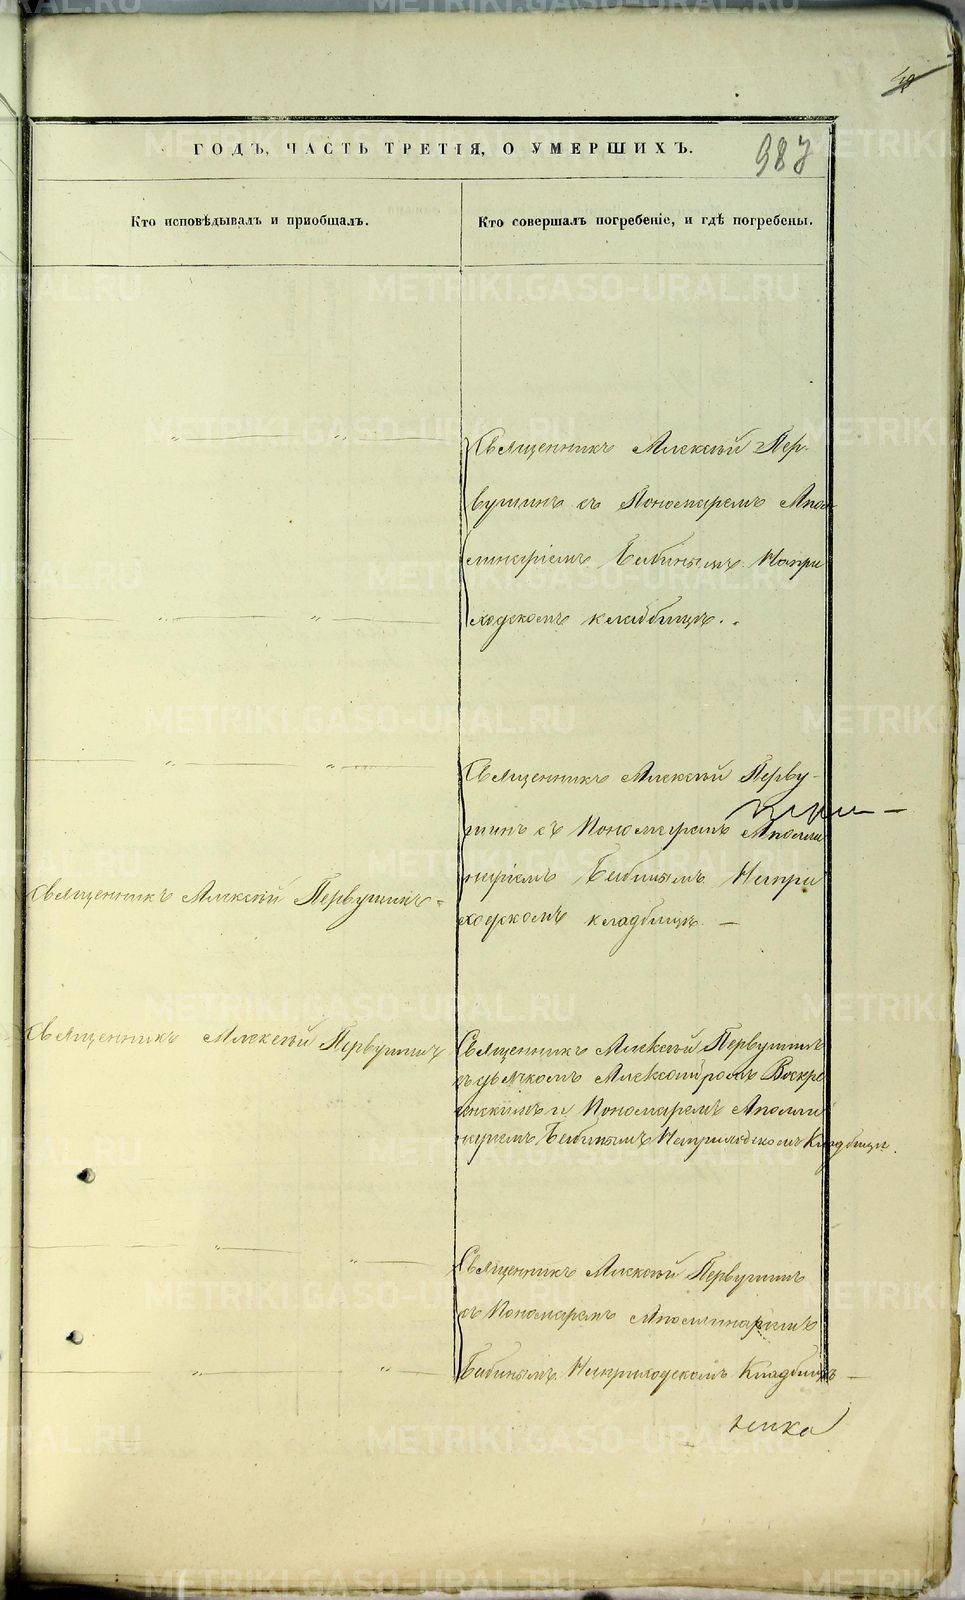 ГОДЪ, ЧАСТЬ ТРЕТІЯ, О УМЕРШИХЪ.
987
Кто исповѣдывалъ и пріобщалъ.
Кто совершалъ погребеніе, и гдѣ погребены.
Священникъ Алексѣй Пер-
вушинъ съ Пономаремъ Апол
линаріемъ Бабинымъ. Напри
ходскомъ кладбищѣ.
Священникъ Алексѣй Перву-
шинъ съ Пономаремъ Аполли
наріемъ Бабинымъ Напри
ходскомъ кладбищѣ. —
Священникъ Алексѣй Первушинъ
Священникъ Алексѣй Первушинъ
Священникъ Алексѣй Первушинъ
съ дьячкомъ Александромъ Воскре
сенскимъ и Пономаремъ Аполли
наріемъ Бабинымъ Наприходскомъ Кладбищѣ.
Священникъ Алексѣй Первушинъ
съ Пономаремъ Аполлинаріемъ
Бабинымъ Наприходскомъ Кладбищѣ —
METRIKI.GASO-URAL.RU